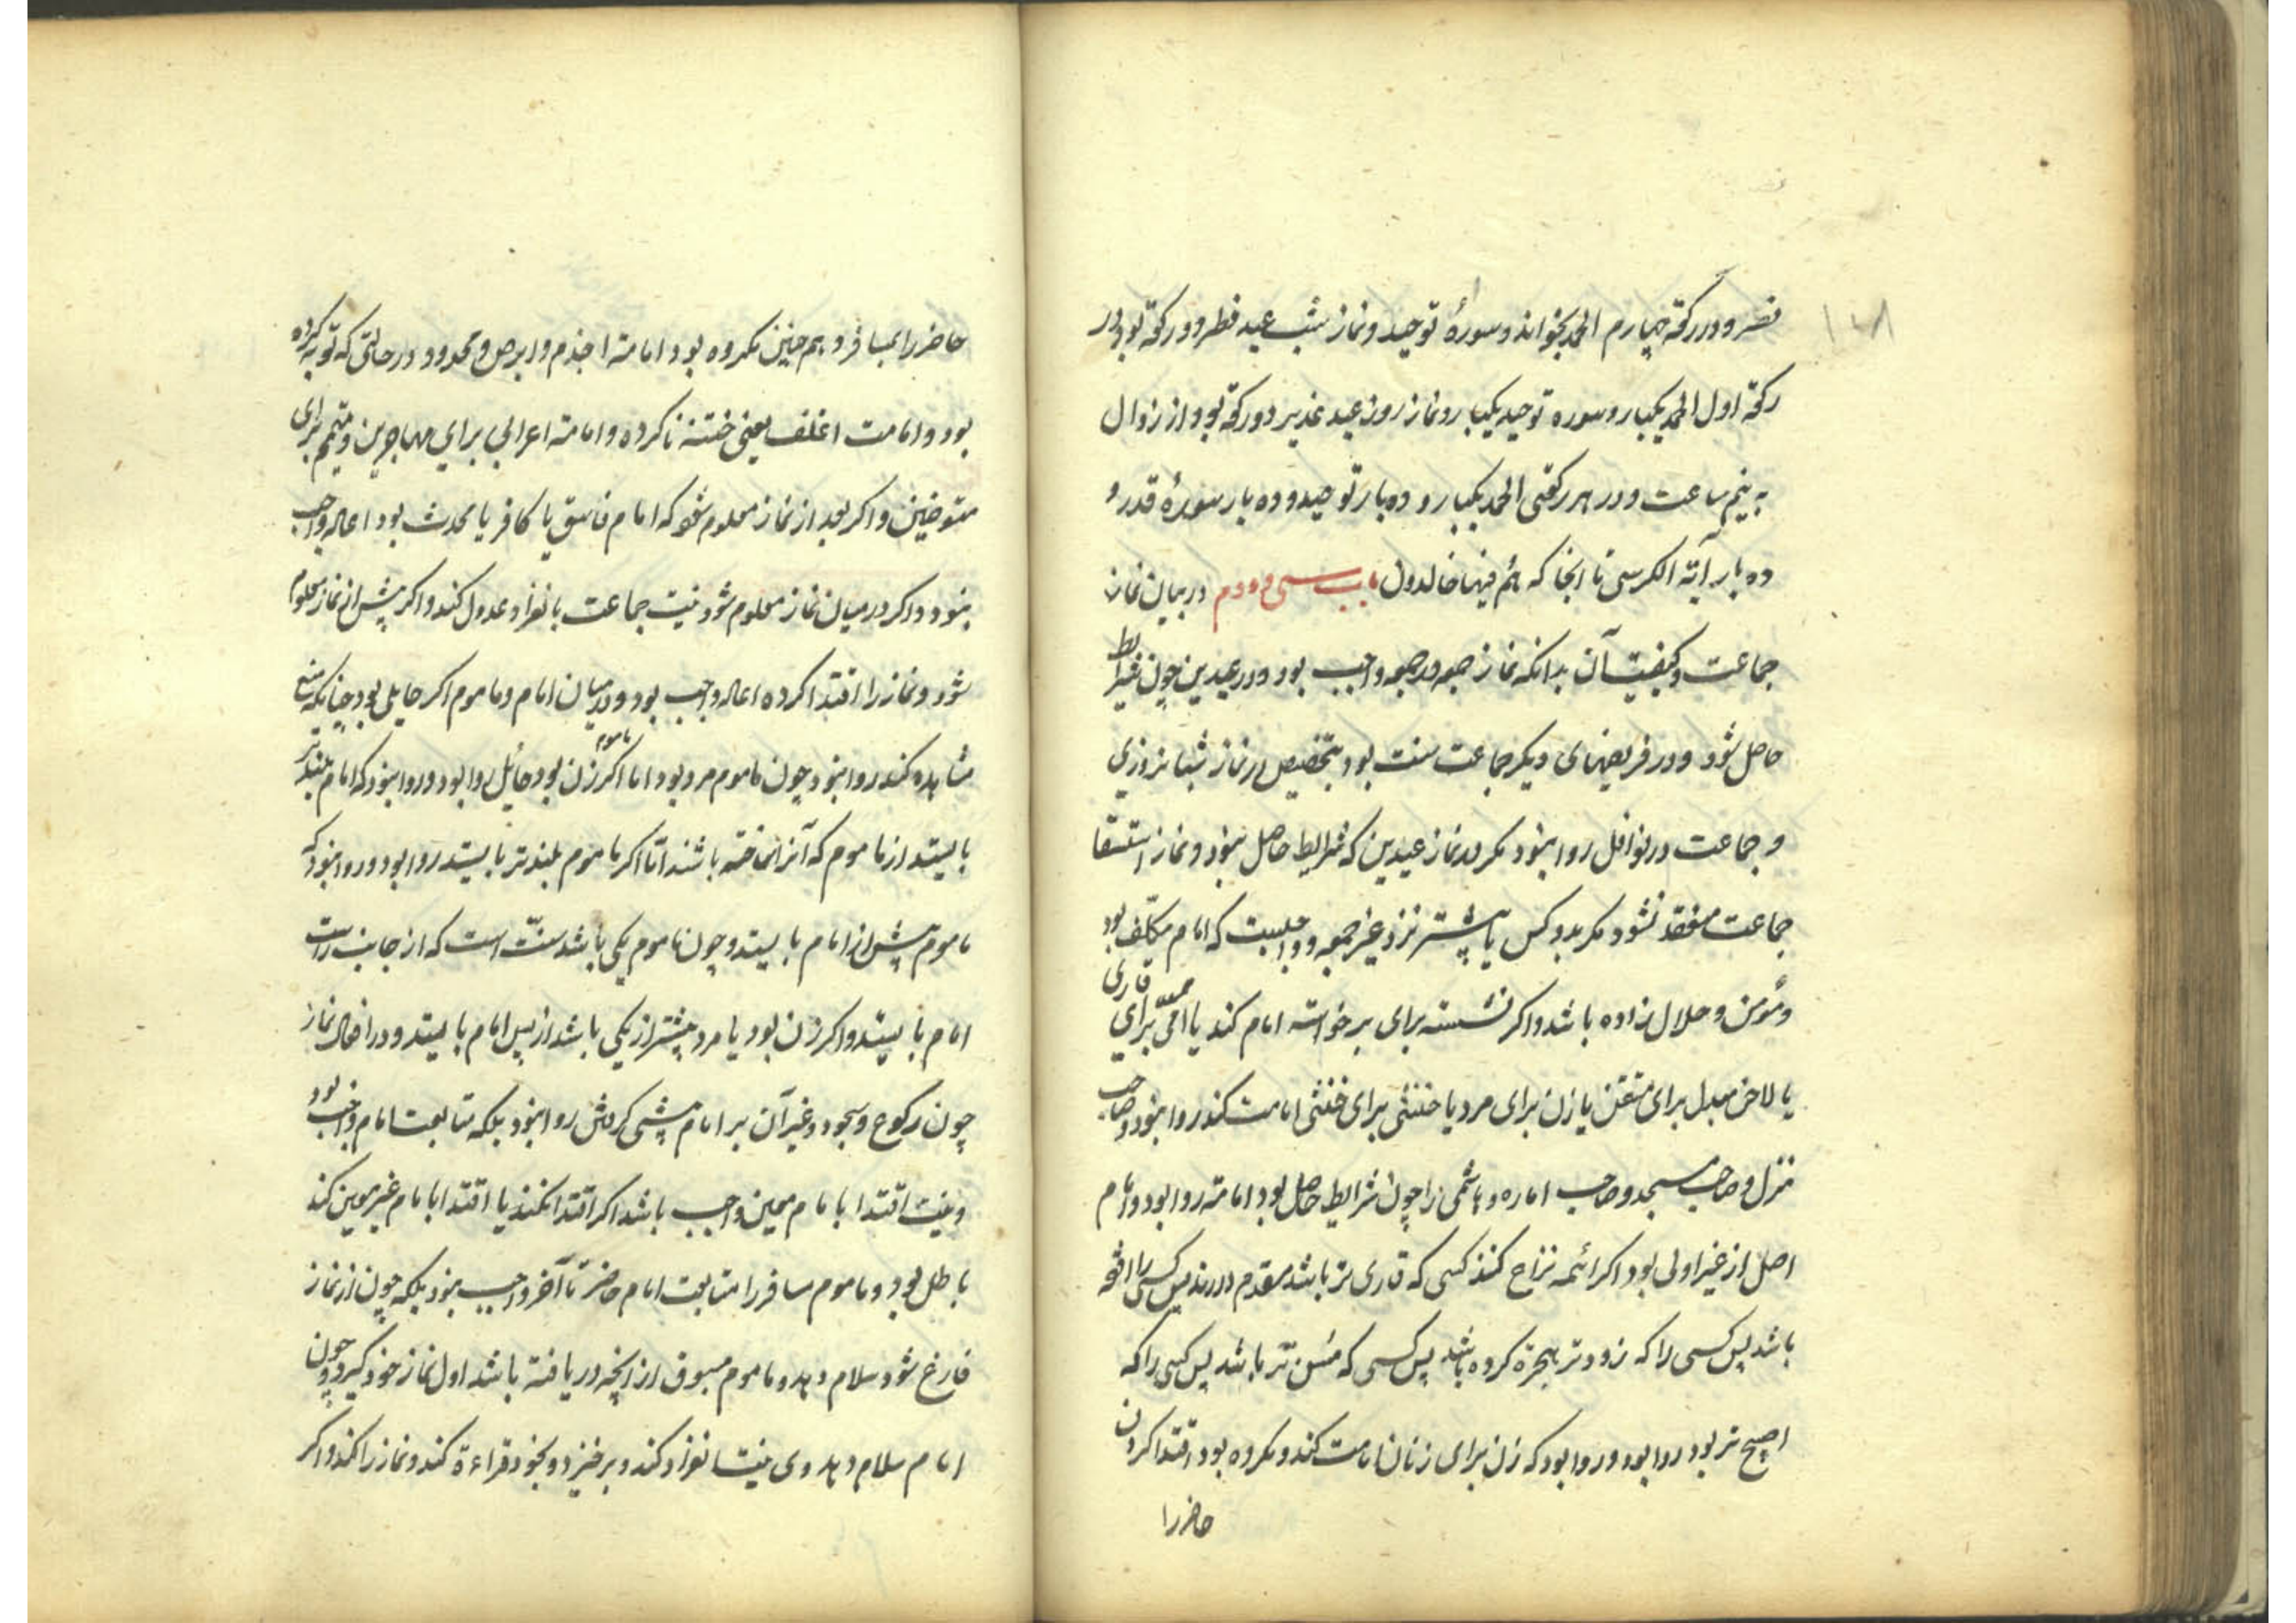 ۱۴۸
نصر و در رکعة چهارم الحمد بخواند و سورهٔ توحید و نماز شب عید فطر دو رکعة بود در
رکعة اول الحمد یکبار و سوره توحید یکبار و نماز روز عید غدیر دو رکعة بود از زوال
به نیم ساعت و در هر رکعتی الحمد یکبار و ده بار توحید و ده بار سورهٔ قدر و
ده بار آیة الکرسی تا انجا که هم فیها خالدون باب سی و دوم در بیان نماز
جماعت و کیفیت آن بدانکه نماز جمعه در جمعه واجب بود و در عیدین چون شرایط
حاصل شود و در فریضهای دیکر جماعت سنت بود بتخصیص در نماز شبانروزی
و جماعت در نوافل روا نبود مکر در نماز عیدین که شرایط حاصل نبود و نماز استسقا
جماعت منعقد نشود مکر بدو کس یا بیشتر نزد غیر جمعه و واجبست که امام مکلف بود
و مؤمن و حلال زاده باشد و اکر نشسته برای برخواسته امام کند یا امّی برای قاری
یا لاحن مبدل برای متقن یا زن برای مرد یا خنثی برای خنثی امامت کند روا نبود و صاحب
منزل و صاحب مسجد و صاحب اماره و هاشمی را چون شرایط حاصل بود امامة روا بود و امام
اصل از غیر اولی بود اکر ائمه نزاع کنند کسی که قاری تر باشد مقدم دارند پس کسی را افقه
باشد پس کسی را که زودتر هجرة کرده باشد پس کسی که مُسن تر باشد پس کسی را که
اصبح تر بود روا بود و روا بود که زن برای زنان امامت کند و مکروه بود اقتدا کردن
حاضر را
حاضر را بمسافر و هم چنین مکروه بود امامة اجذم و ابرص و محدود در حالتی که توبه کرده
بود و امامت اغلف یعنی ختنه ناکرده و امامة اعرابی برای مهاجرین و متیمم برای
متوضین و اکر بعد از نماز معلوم شود که امام فاسق یا کافر یا محدث بود اعاله واجب
نبود و اکر در میان نماز معلوم شود نیت جماعت بانفراد عدول کند و اکر پیش از نماز معلوم
شود و نماز را اقتدا کرده اعاله واجب بود و در میان امام و ماموم اکر حایلی بود چنانکه منع
مشاهده کند روا نبود چون ماموم مرد بود اما اکر ماموم زن بود حائل روا بود و روا نبود که امام بلندتر
بایستد از ماموم که آنرا ساخته باشند امّا اکر ماموم بلندتر بایستد روا بود و روا نبود که
ماموم پیش از امام بایستد و چون ماموم یکی باشد سنّت است که از جانب راست
امام بایستد و اکر زن بود یا مرد بیشتر از یکی باشد از پس امام بایستد و در افعال نماز
چون رکوع و سجود و غیر آن بر امام پیشی کردنش روا نبود بلکه متابعت امام واجب بود
و نیت اقتدا بامام معین واجب باشد اکر اقتدا نکند یا اقتدا بامام غیر معین کند
باطل بود و ماموم مسافر را متابعت امام حاضر تا آخر واجب نبود بلکه چون از نماز
فارغ شود سلام دهد و ماموم مسبوق از انچه دریافته باشد اول نماز خود کیرد و چون
امام سلام دهد وی نیت انفراد کند و برخیزد و بخود قراءة کند و نماز را کند و اکر